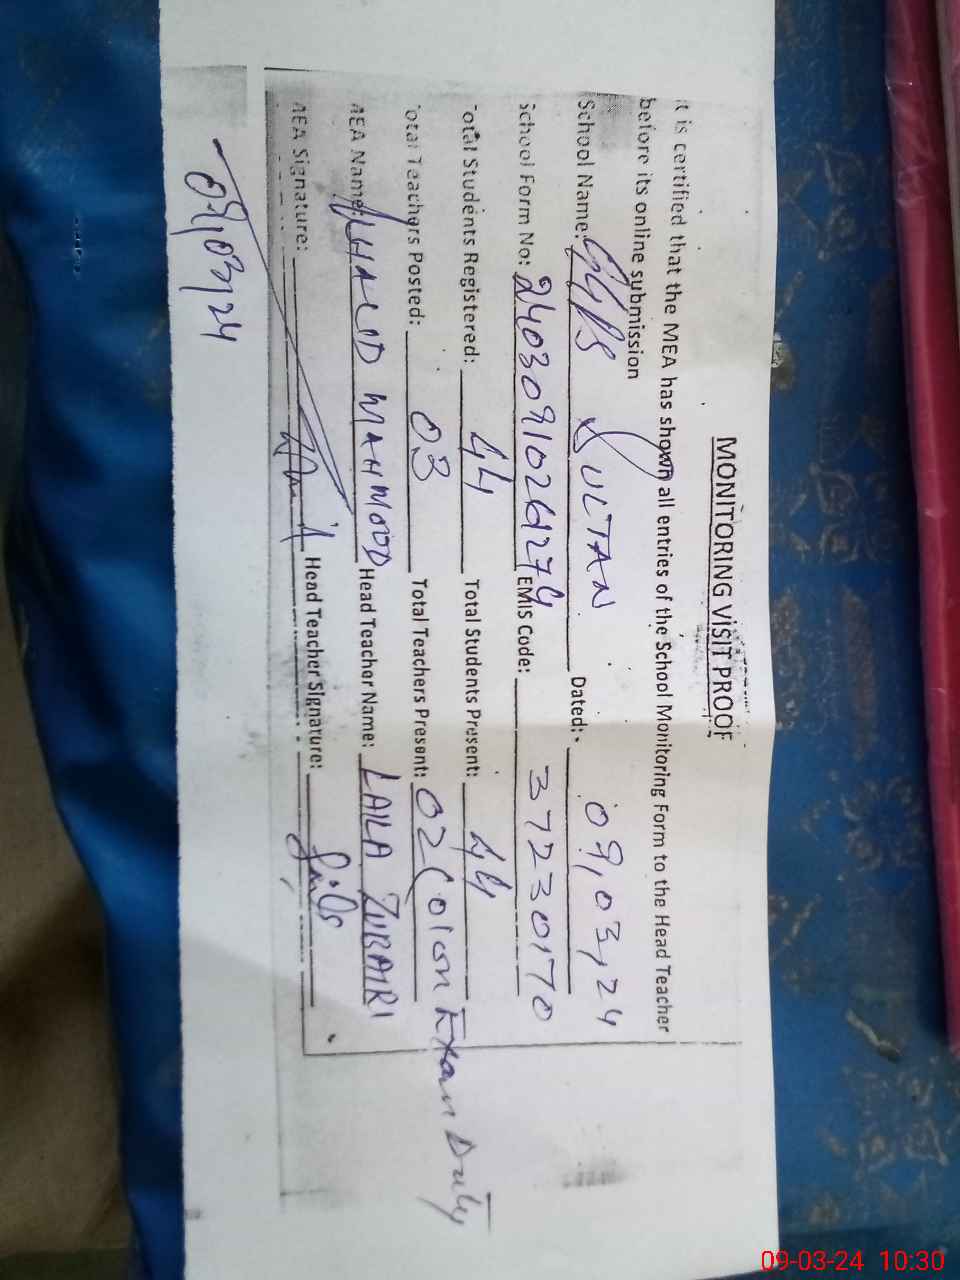 MONITORING VISIT PROOF
It is certified that the MEA has shown all entries of the School Monitoring Form to the Head Teacher
before its online submission
School Name: SULTAN Dated: 09,03,24
School Form No: EMIS Code: 37230170
Total Students Registered: 44 Total Students Present: 44
Total Teachers Posted: 03 Total Teachers Present: 02 (01 on Exam Duty
MEA Name: KHALID MAHMOOD Head Teacher Name: LAILA ZUBAIRI
MEA Signature: Head Teacher Signature:
09,03,24
09-03-24 10:30